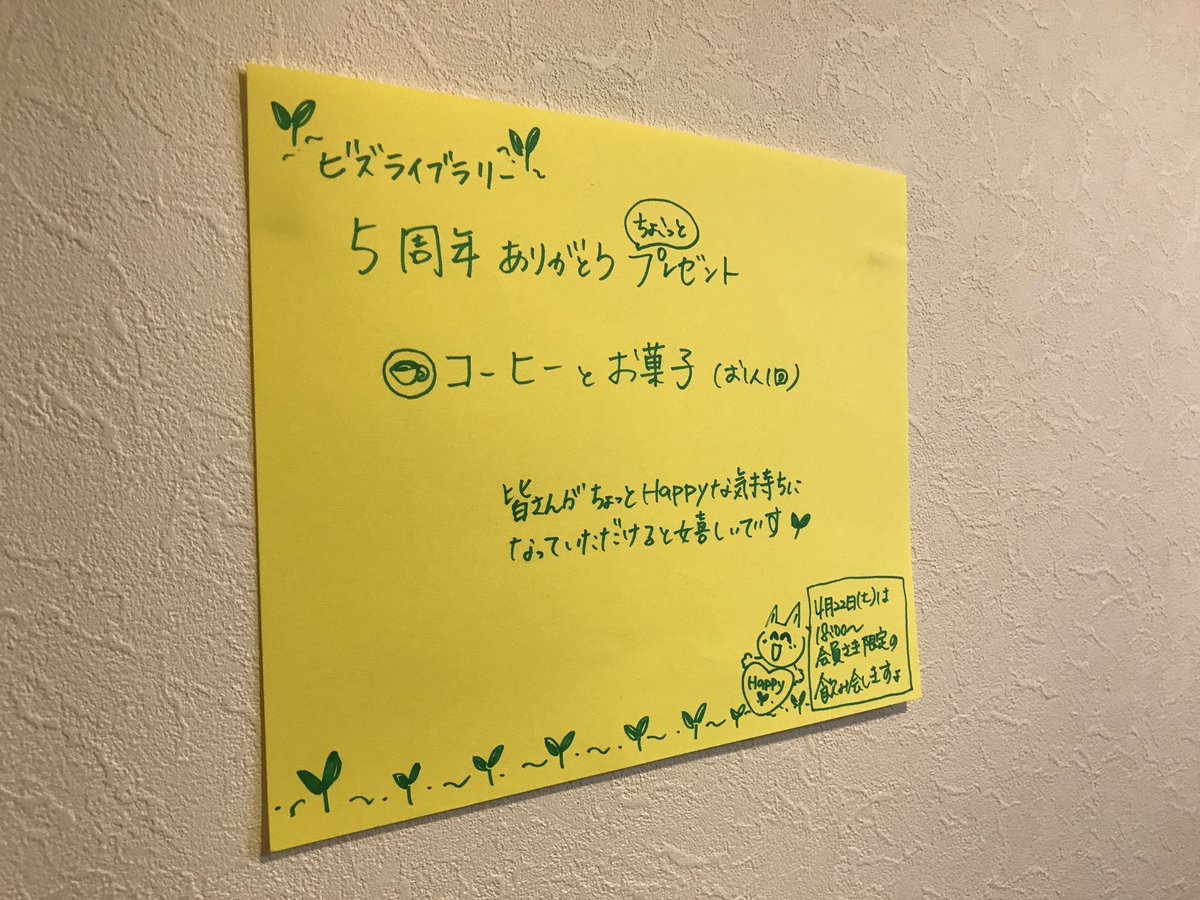 ビズライブラリー
5周年 ありがとう ちょこっと プレゼント
コーヒーとお菓子 (お1人1回)
皆さんがちょっとHappyな気持ちに
なっていただけると嬉しいです
Happy
4月22日(土)は
18:00〜
会員さま限定の
飲み会しますよ